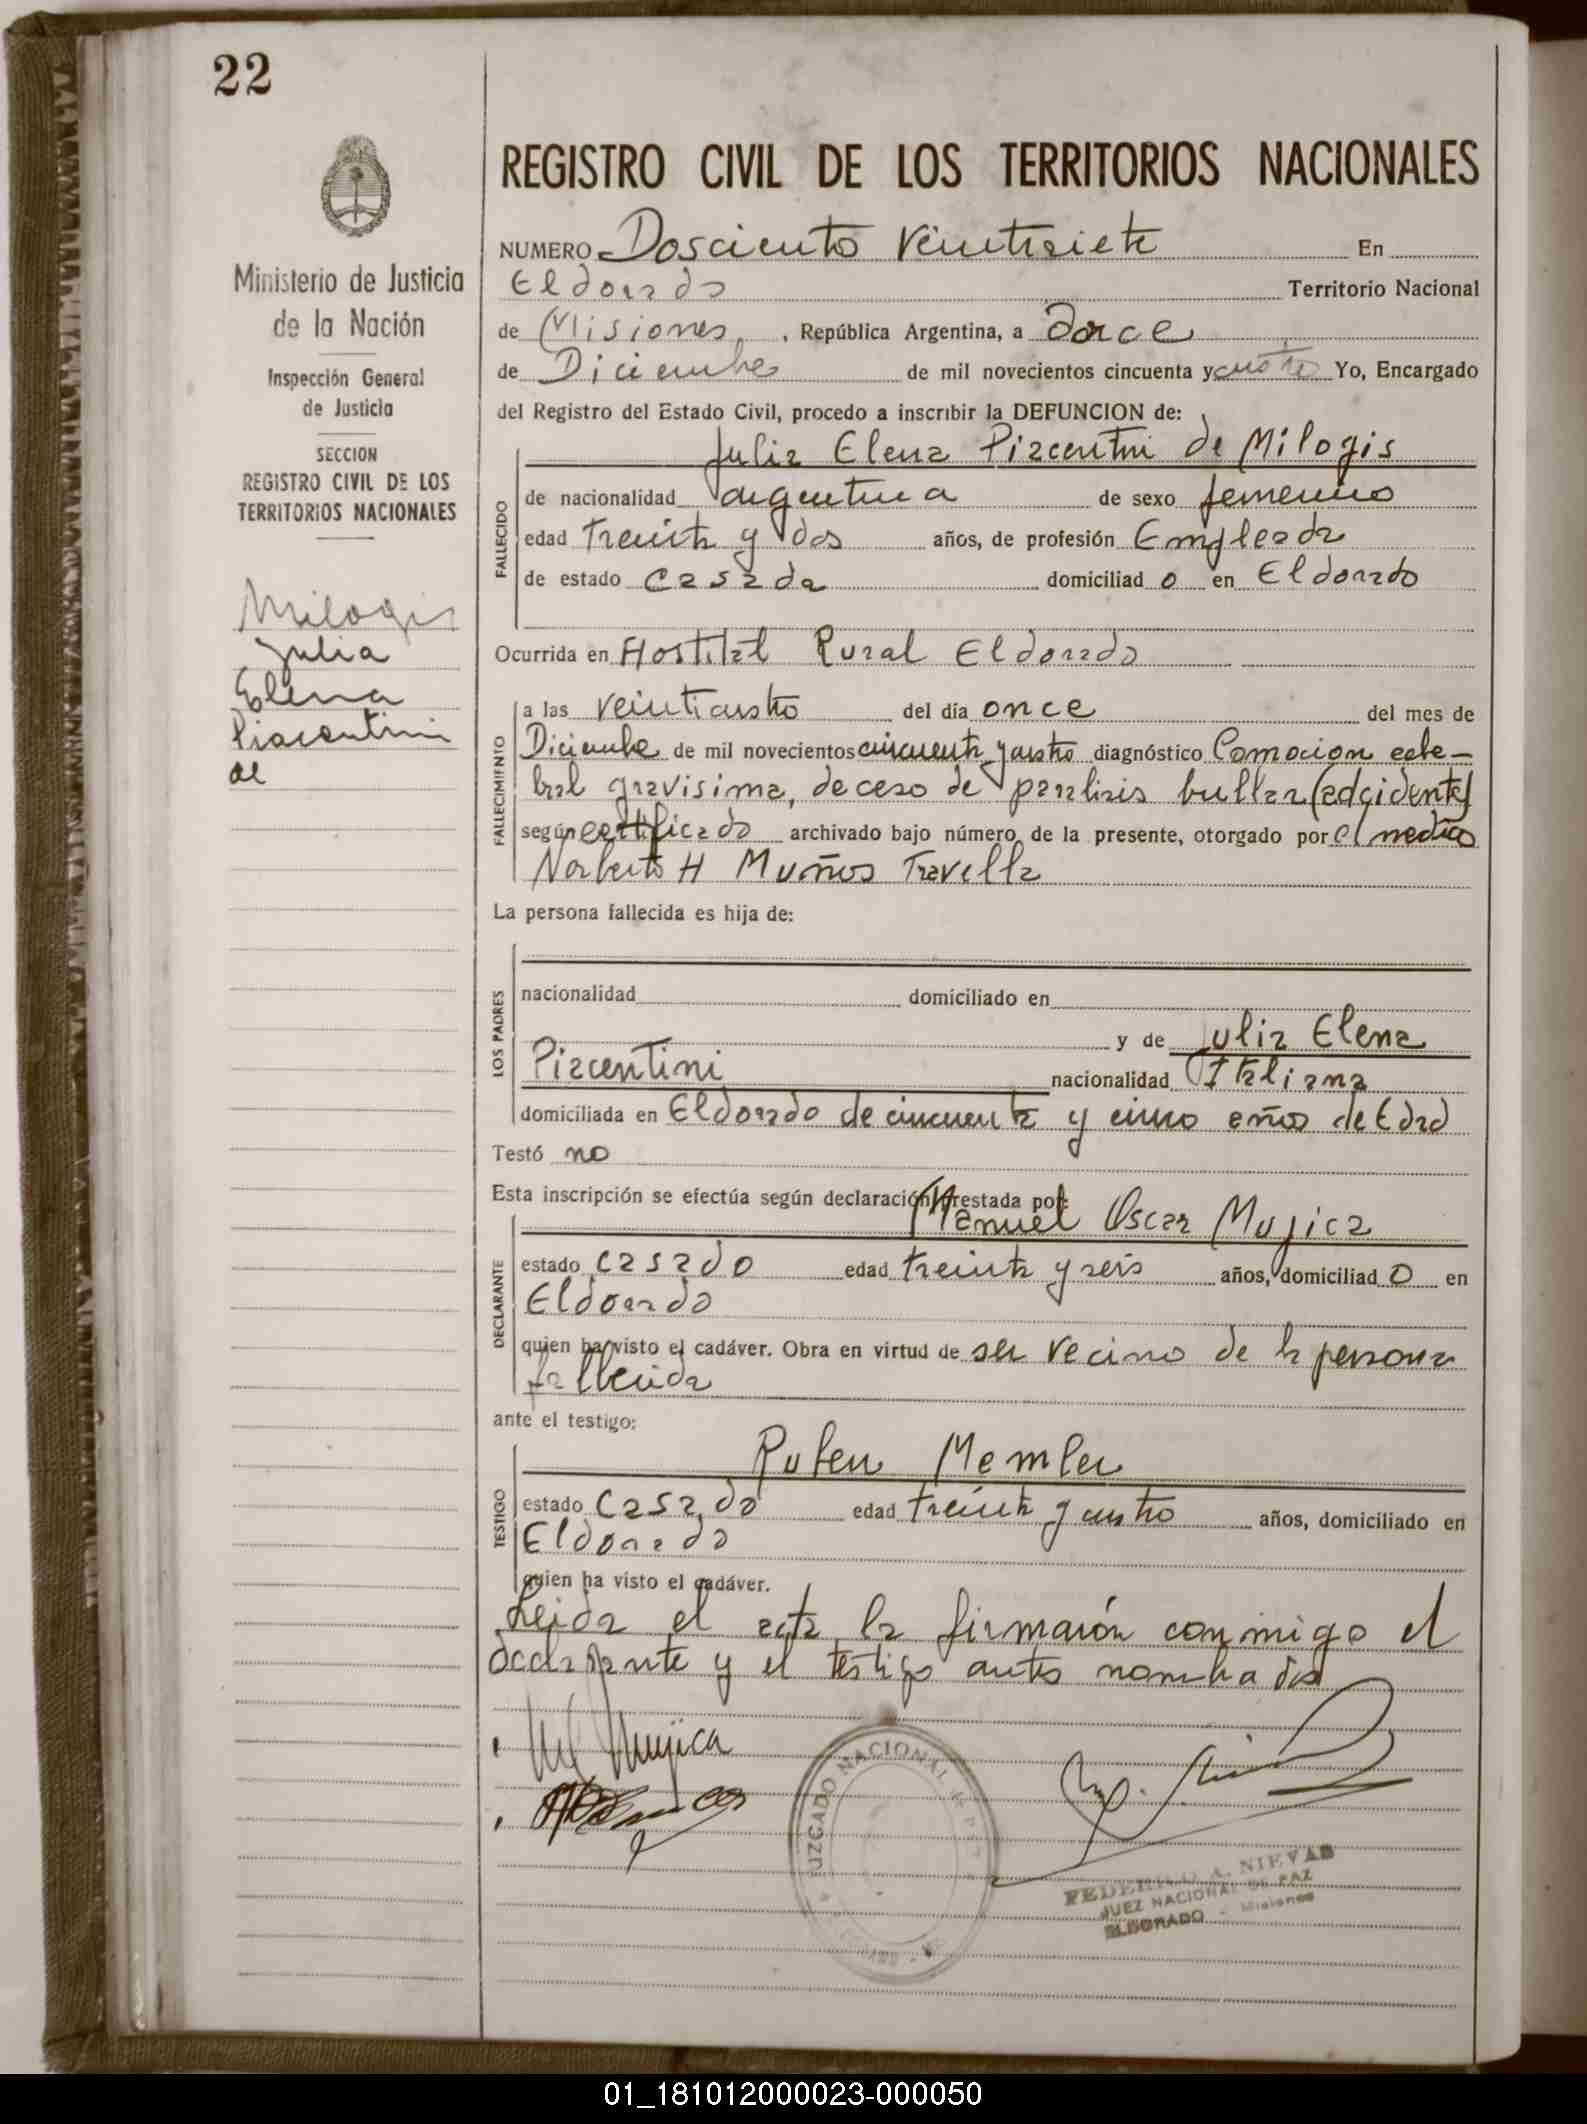 22
Ministerio de Justicia
de la Nación
Inspección General
de Justicia
SECCION
REGISTRO CIVIL DE LOS
TERRITORIOS NACIONALES
Milogis
Julia
Elena
Piacentini
de
REGISTRO CIVIL DE LOS TERRITORIOS NACIONALES
NUMERO Dosciento Veintisiete En
Eldorado Territorio Nacional
de Misiones, República Argentina, a doce
de Diciembre de mil novecientos cincuenta y cuatro Yo, Encargado
del Registro del Estado Civil, procedo a inscribir la DEFUNCION de:
Julia Elena Piacentini de Milogis
FALLECIDO
de nacionalidad argentina de sexo femenino
edad treinta y dos años, de profesión Empleada
de estado casada domiciliad o en Eldorado
Ocurrida en Hostital Rural Eldorado
FALLECIMIENTO
a las veinticuatro del día once del mes de
Diciembre de mil novecientos cincuenta y cuatro diagnóstico Comocion cele-
bral gravisima, deceso de paralisis bulbar (adcidente)
según certificado archivado bajo número de la presente, otorgado por el medico
Norberto H Muños Travella
La persona fallecida es hija de:
LOS PADRES
nacionalidad domiciliado en
y de Julia Elena
Piacentini nacionalidad Italiana
domiciliada en Eldorado de cincuenta y cinco años de Edad
Testó no
Esta inscripción se efectúa según declaración prestada por:
Manuel Oscar Mujica
DECLARANTE
estado casado edad treinta y seis años, domiciliad o en
Eldorado
quien ha visto el cadáver. Obra en virtud de ser vecino de la persona
fallecida
ante el testigo:
Ruben Membler
TESTIGO
estado casado edad treinta y cuatro años, domiciliado en
Eldorado
quien ha visto el cadáver.
Leida el acta la firmarón conmigo el
declarante y el testigo antes nombrados
Mujica
JUZGADO NACIONAL DE PAZ
FEDERICO A. NIEVAS
JUEZ NACIONAL DE PAZ
ELDORADO - Misiones
01_181012000023-000050